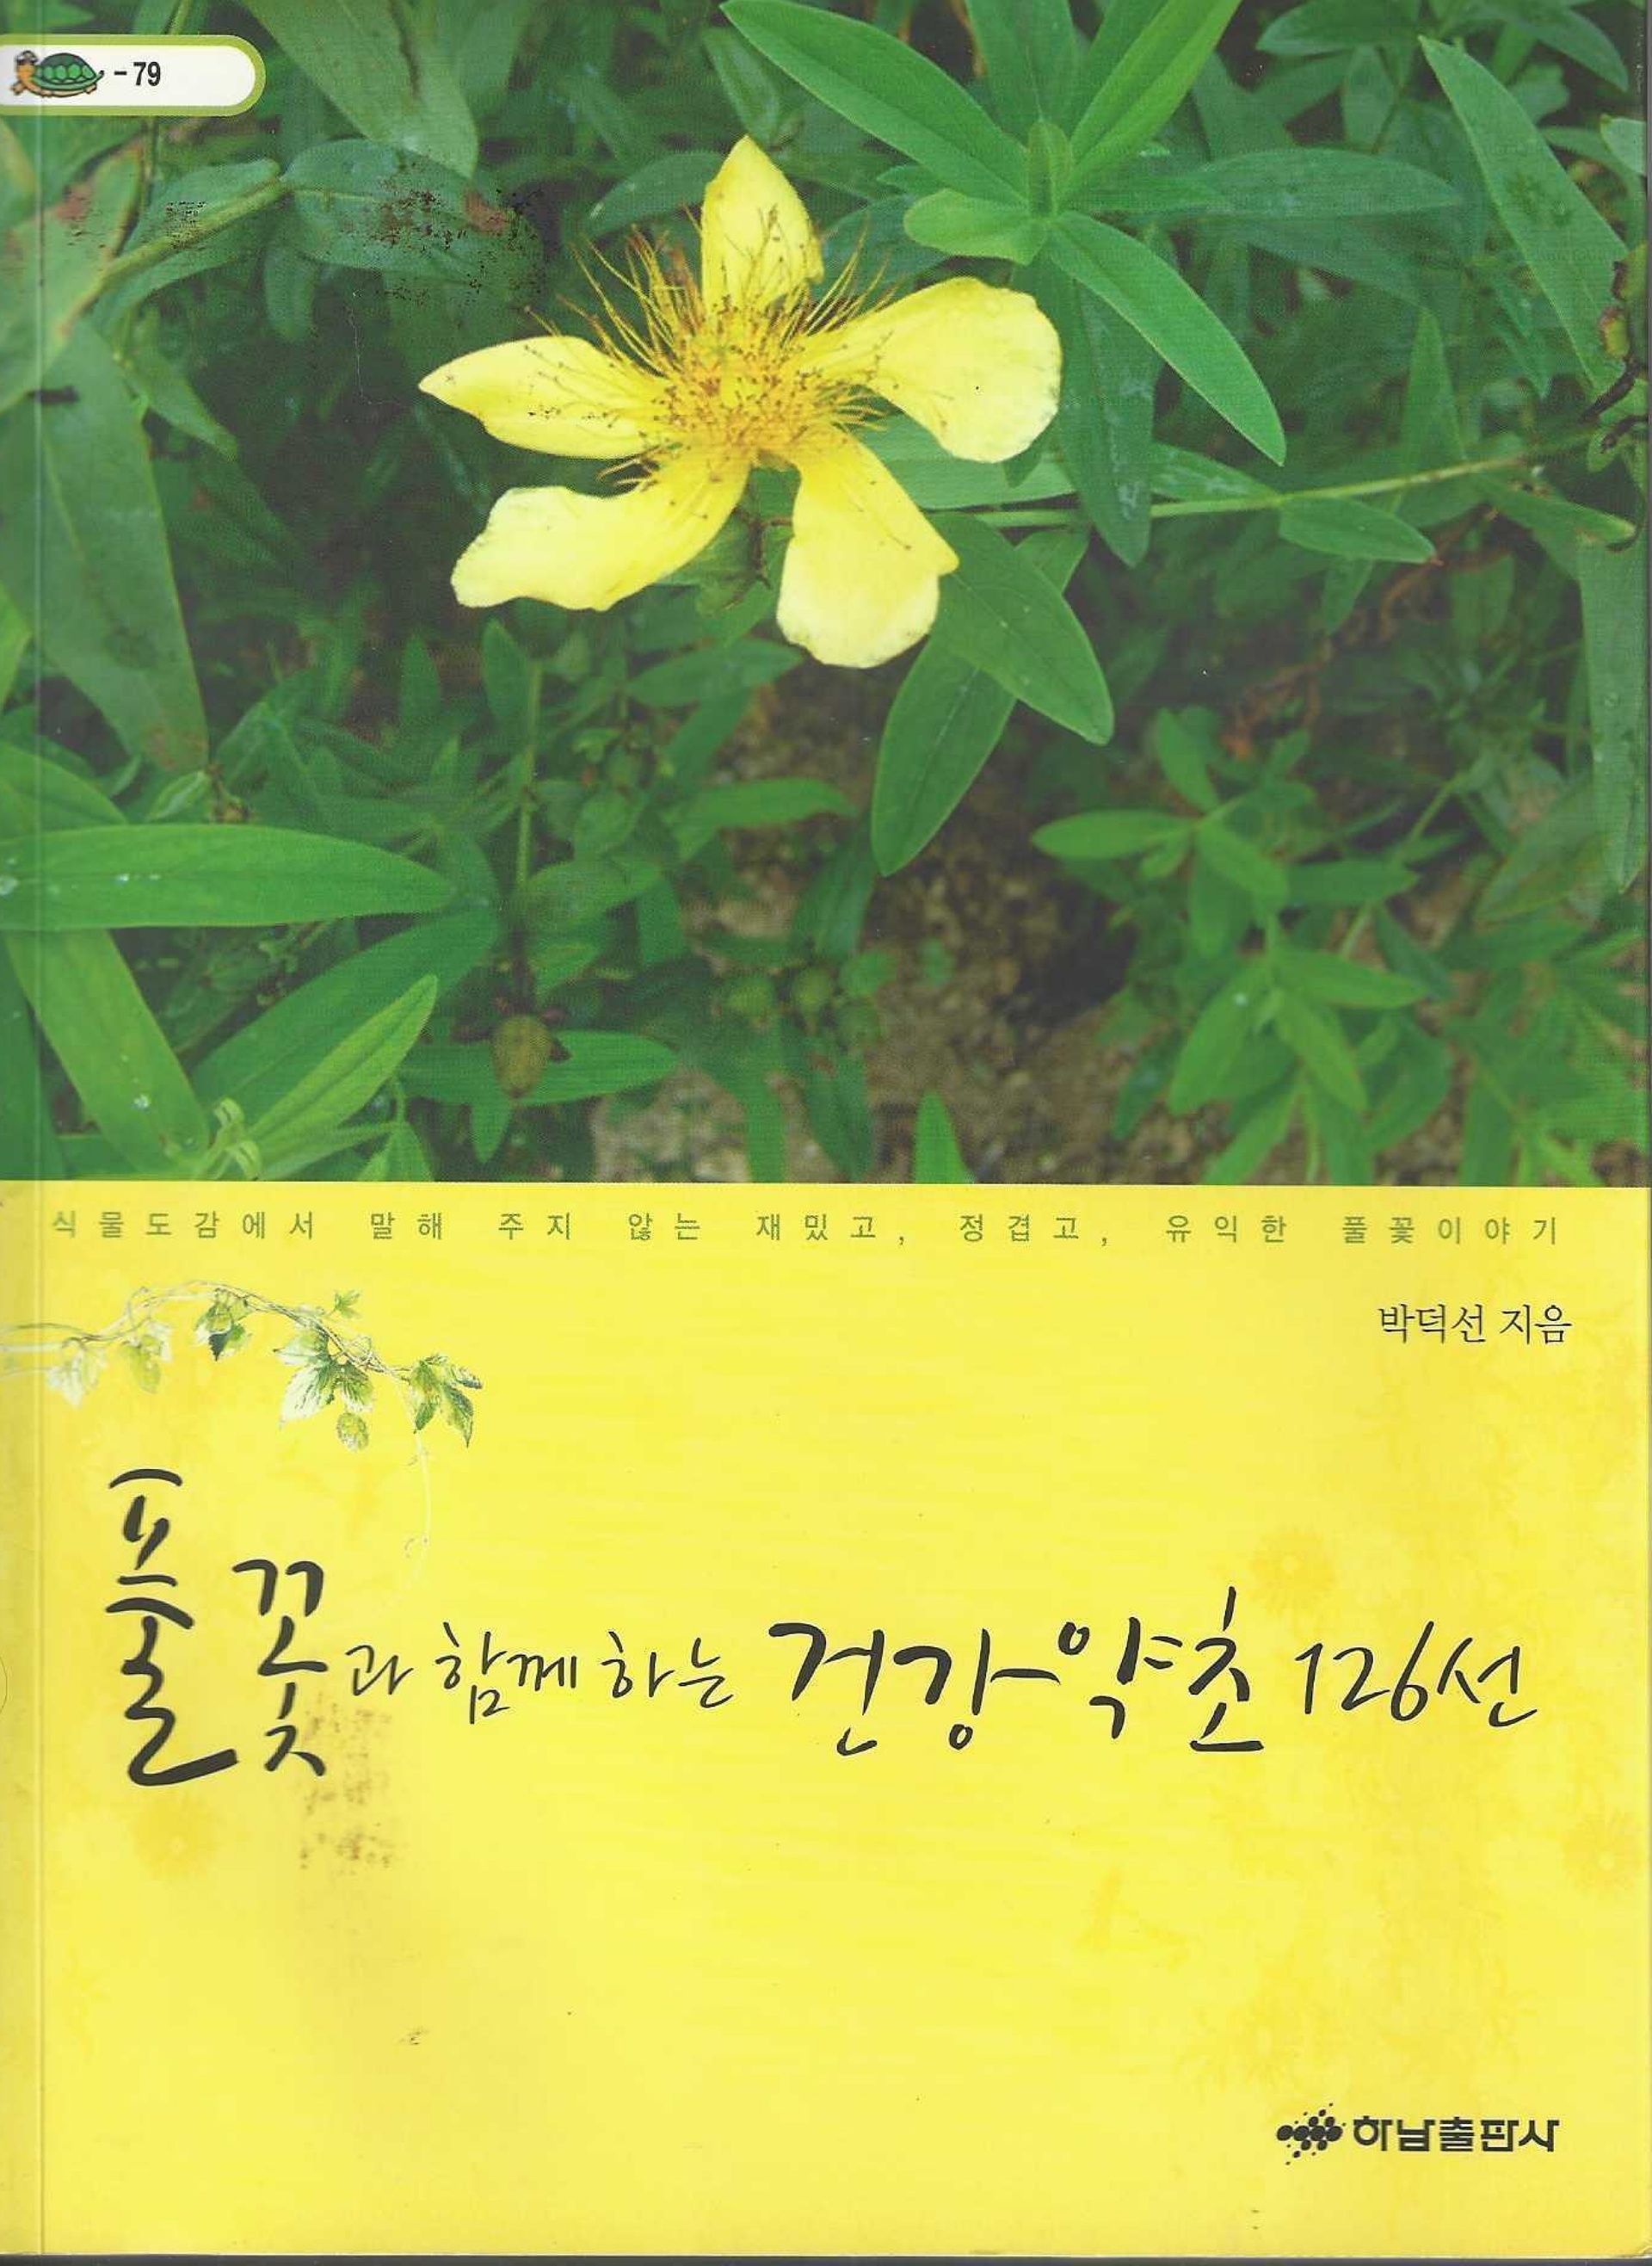 -79
식물도감에서 말해 주지 않는 재밌고, 정겹고, 유익한 풀꽃이야기
박덕선 지음
풀꽃과 함께하는 건강약초 126선
하남출판사